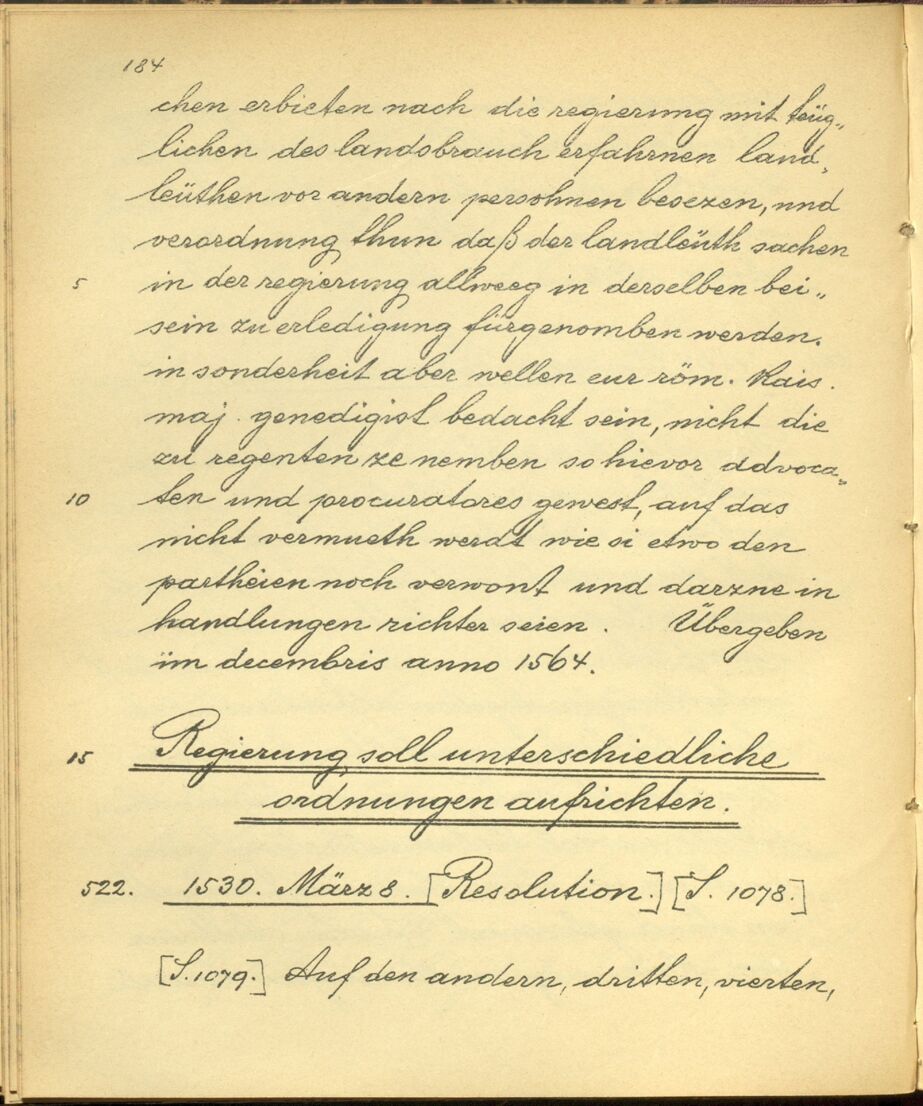 184
chen erbieten nach die regierung mit teüg„
lichen des landsbrauch erfahrnen land„
leüthen vor andern persohnen besezen, und
verordnung thun daß der landleüth sachen
5 in der regierung allweeg in derselben bei„
sein zu erledigung fürgenomben werden.
in sonderheit aber wellen eur röm. Kais.
maj. genedigist bedacht sein, nicht die
zu regenten ze nemben so hievor advoca„
10 ten und procuratores gewest, auf das
nicht vermueth werdt wie si etwo den
partheien noch verwont und darzue in
handlungen richter seien. Übergeben
im decembris anno 1564.
15 Regierung soll unterschiedliche
ordnungen aufrichten.
522. 1530. März 8. [Resolution.] [S. 1078.]
[S. 1079.] Auf den andern, dritten, vierten,